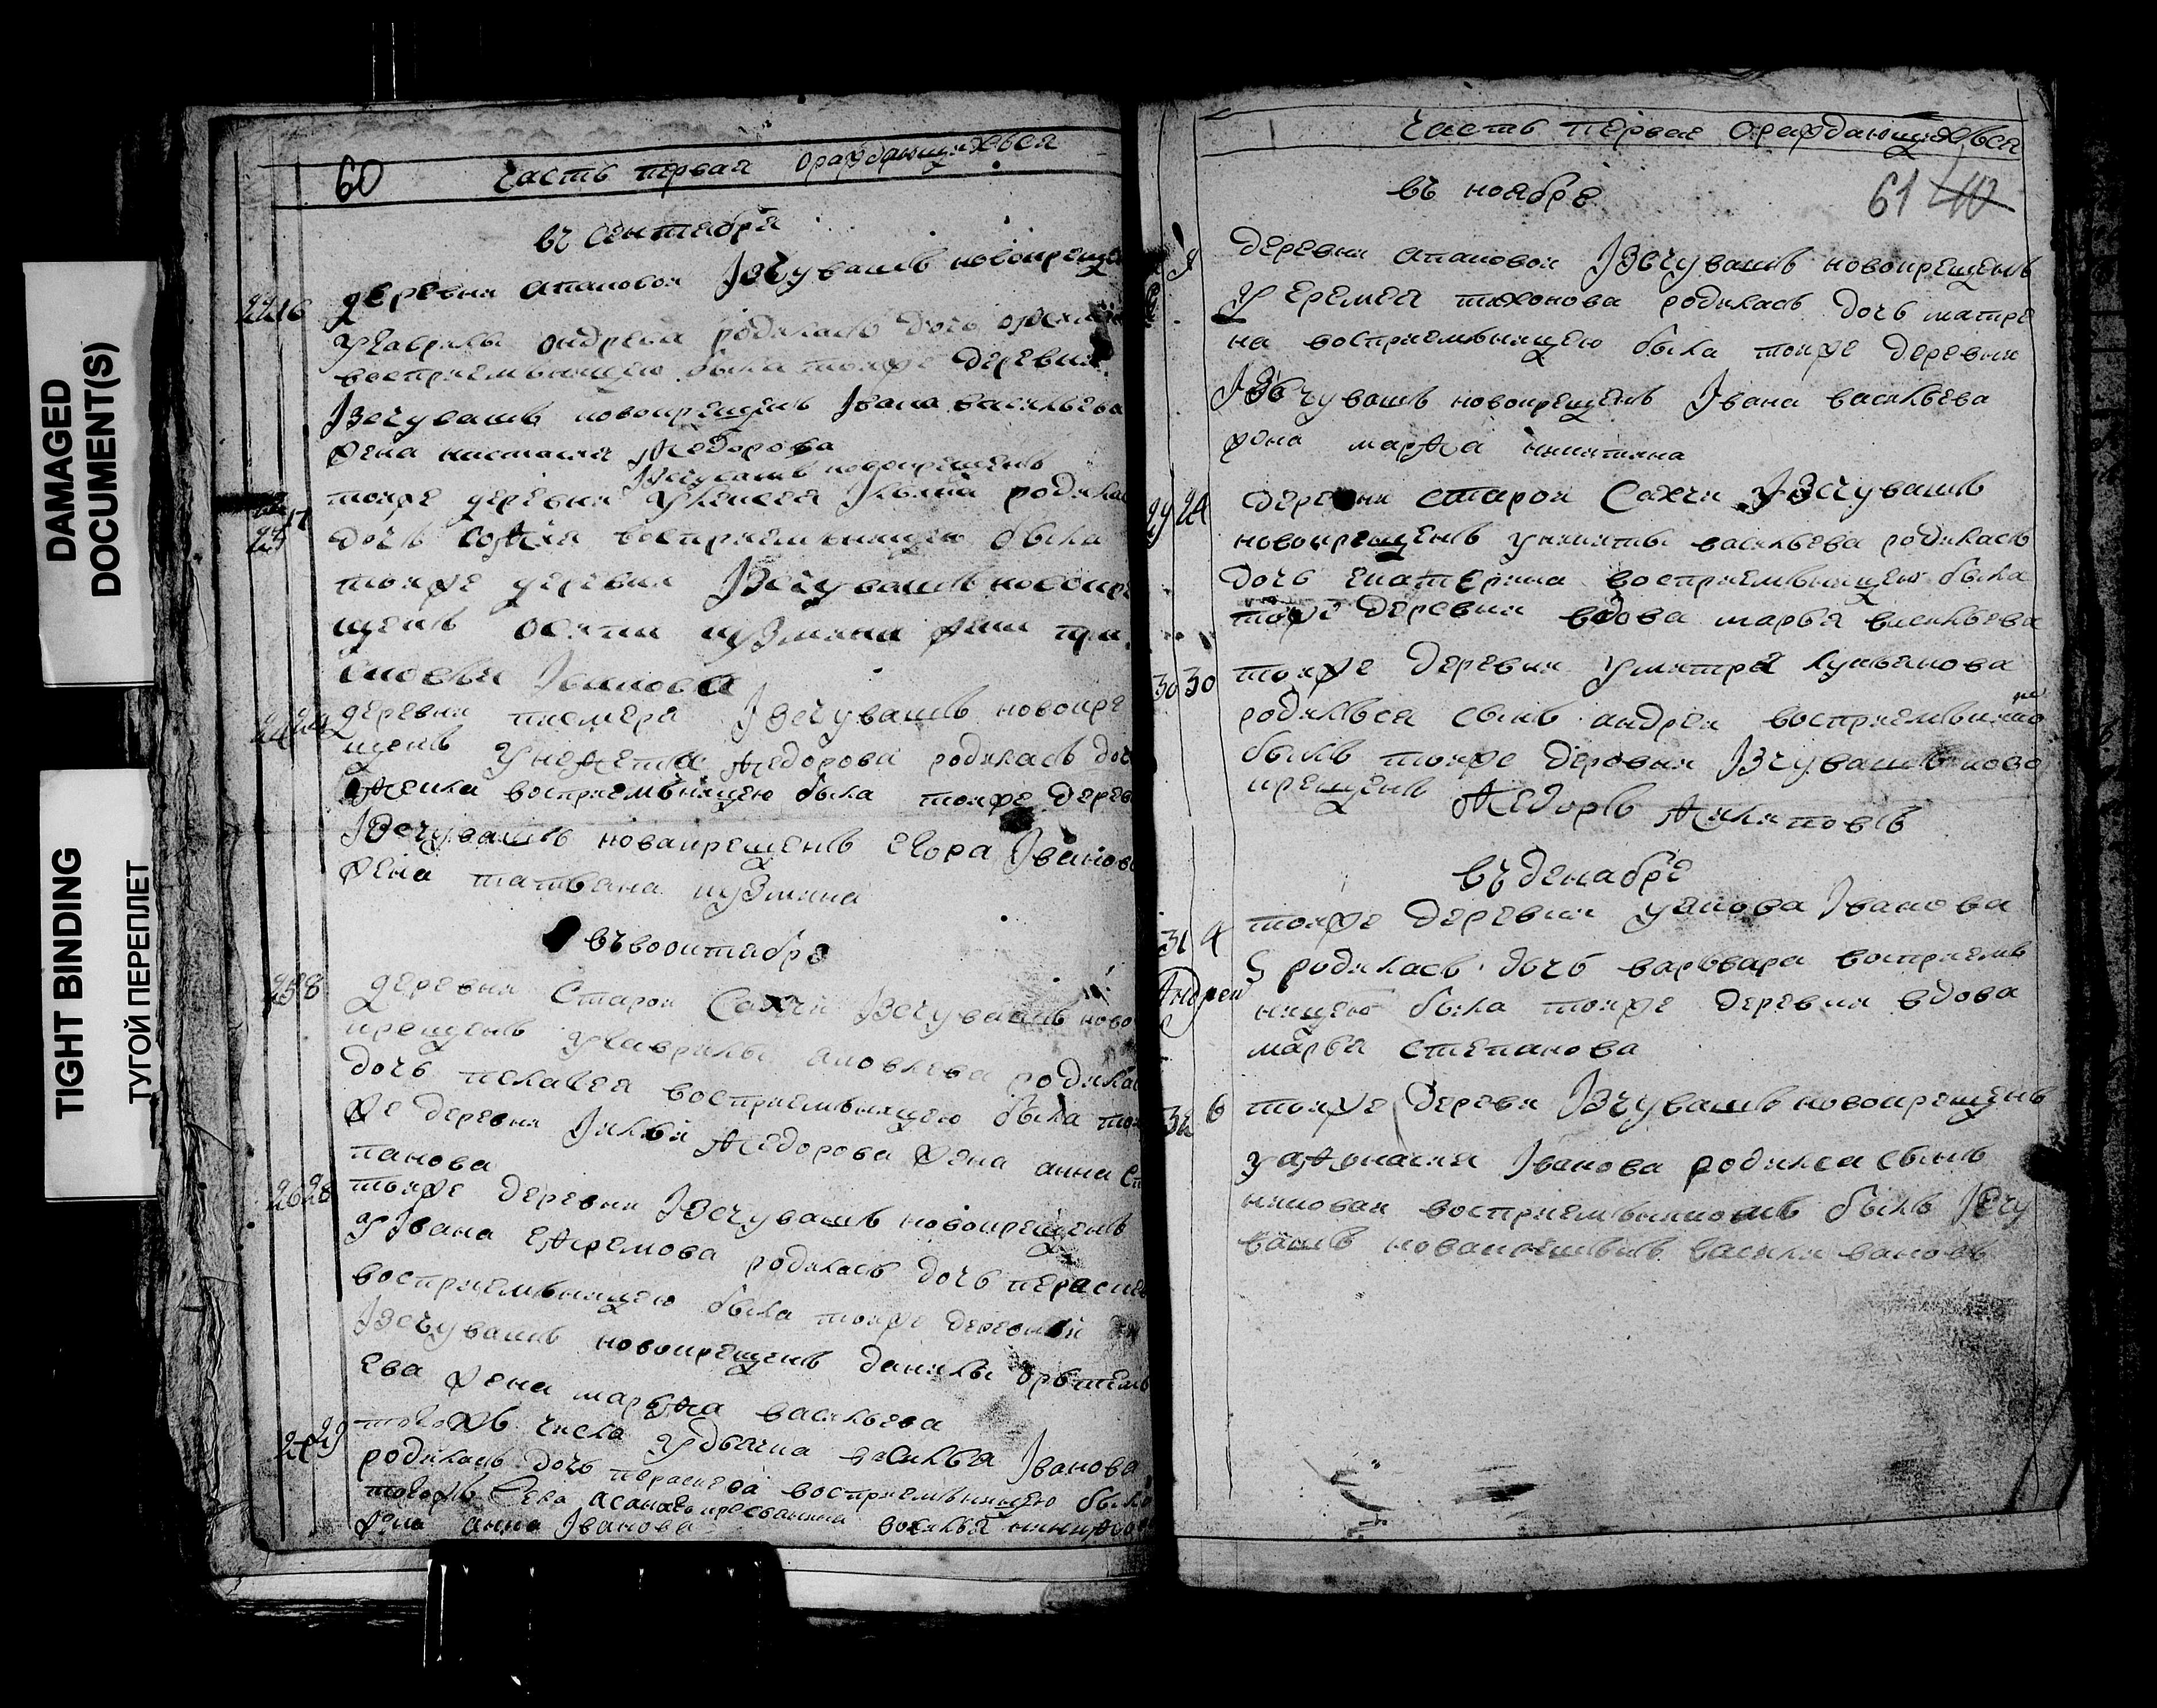 DAMAGED
DOCUMENT(S)
TIGHT BINDING
ТУГОЙ ПЕРЕПЛЕТ
60
часть первая ораждающихься
въ сентебря
22 16 деревни апаковои Iзчувашъ новокреще
Уgаврилы андреева родилась дочь
восприемьницею была тояже деревни
Iзчувашъ новокрещенъ Iвана васильева
жена настасия Федорова
Iзчувашъ новокрещенъ
тояже деревни Уелисея родила
23 17 дочь София восприемьницею была
тояже деревни Iзчувашъ новокре
щенъ осипа кузмина жена пра
сковья Iванова
24 деревни писмеря Iзчувашъ новокре
щенъ Федорова родилась доч
Фекла восприемьницею была тояже дерев
Iзчувашъ новакрещенъ егора Iванов
жена татьяна кузмина
въвооктебре
25 8 деревни Старои Сахчи Iзчувашъ ново
крещенъ Угаврилы яковлева родилас
дочь пелагея восприемьницею была тоя
же деревни Iльи Федорова жена анна Сте
панова
26 28 тояже деревни Iзчувашъ новокрещенъ
У Iвана ефремова родилась дочь параске
восприемьницею была тояже деревни
Iзчувашъ новокрещенъ данилы
ева жена марфа васильева
27 29 тогожъ числа Удьячка василья Iванова
родилась дочь параскева восприемьницею был
тогожъ села
жена анна Iванова
часть первая ораждающихься
61 40
въ ноябре
9 деревни апаковои Iзчувашъ новокрещенъ
У еремея тихонова родилась дочь матре
на восприемьницею была тояже деревни
Iзчувашъ новокрещенъ Iвана васильева
жена марфа никитина
29 24 деревни старои Сахчи Iзчувашъ
новокрещенъ уникиты васильева родилась
дочь екатерина восприемьницею была
тоже деревни вдова марья васильева
30 30 тояже деревни Умитрея лукьянова
родилься сынъ андреи восприемьникомъ
былъ тояже деревни Iзчувашъ ново
крещенъ Федоръ Филиповъ
въ декабре
31 4 тояже деревни уякова Iванова
родилась дочь варьвара восприемь
Андрей
ницею была тояже деревни вдова
марья степанова
32 6 тояже деревн Iзчувашъ новокрещенъ
уафонасия Iванова родился сынъ
николаи восприемьникомъ былъ Iзчу
вашъ новакрещенъ василеи